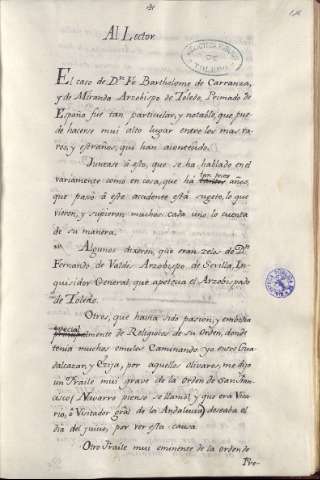 Al Lector
BIBLIOTECA PUBLICA
DE
TOLEDO
El caso de Dn. Fr. Bartholome de Carranza,
y de Miranda Arzobispo de Toledo, Primado de
España fue tan particular, y notable, que pue-
de hacerse mui alto lugar entre los mas ra-
ros, y estraños, qui han acontecido.
Juntase á ésto, que se ha hablado en él
variamente como en cosa, que há tan pocos años,
que pasó á éste accidente está sugeto, lo que
vieron, y supieron muchos cada uno lo cuenta
de su manera.
Algunos dixeron, que eran zelos de Dn.
Fernando de Valdes Arzobispo de Sevilla, In-
quisidor General que apetecia el Arzobispado
de Toledo.
Otros, que havia sido pasion, y embidia
especialmente de Religiosos de su Orden, donde
tenia muchos emulos Caminando yo entre Guad-
alcazar, y Ezija, por aquellos olivares, me dijo
un Fraile mui grave de la Orden de San Fran-
cisco (Navarro pienso se llama) y que era Vica-
rio, ó Visitador grãl de la Andalucia) deseaba el
dia del juicio, por ver esta causa.
Otro Fraile mui eminente de la orden de
Pre-